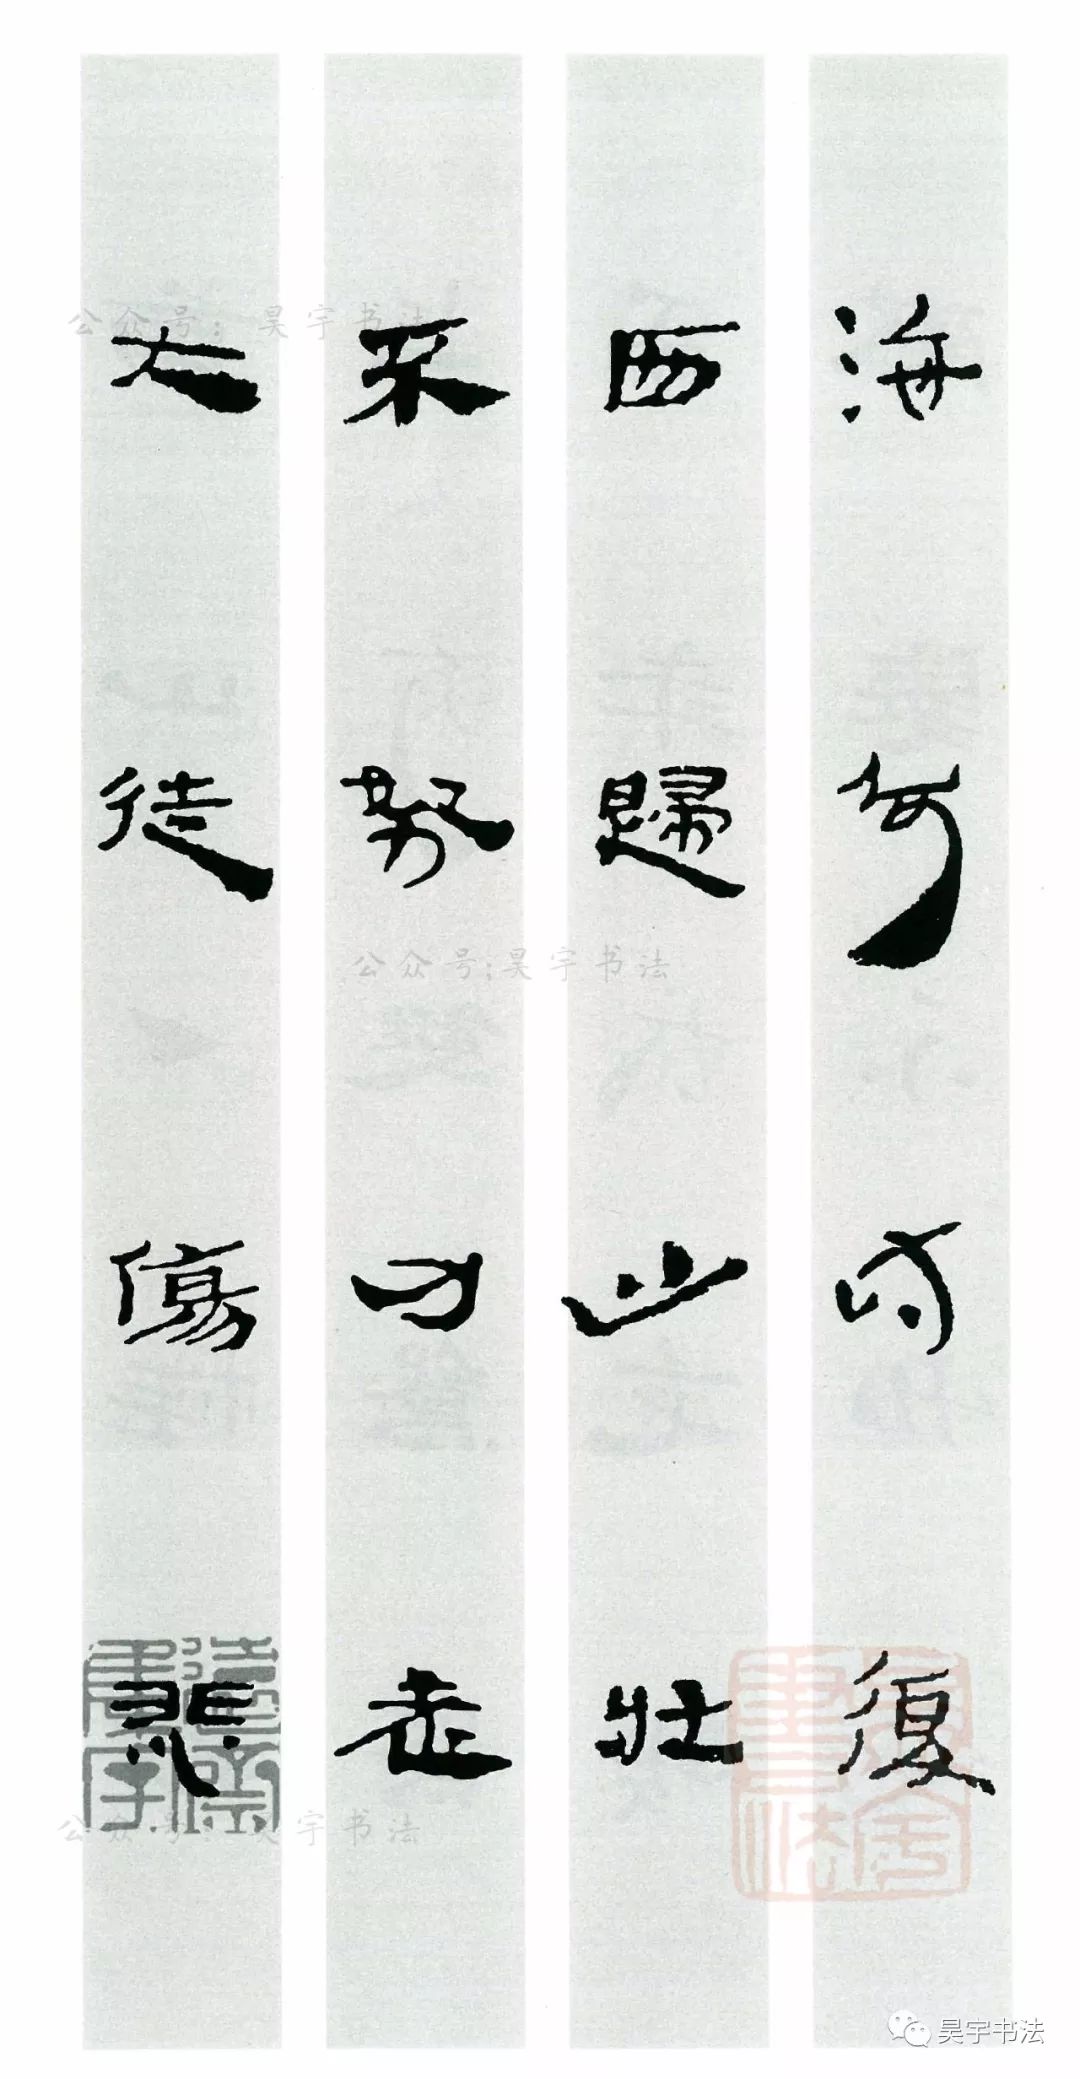 海何時復
西歸少壯
不努力老
大徒傷悲
公众号：昊宇书法
公众号：昊宇书法
公众号：昊宇书法
昊宇书法